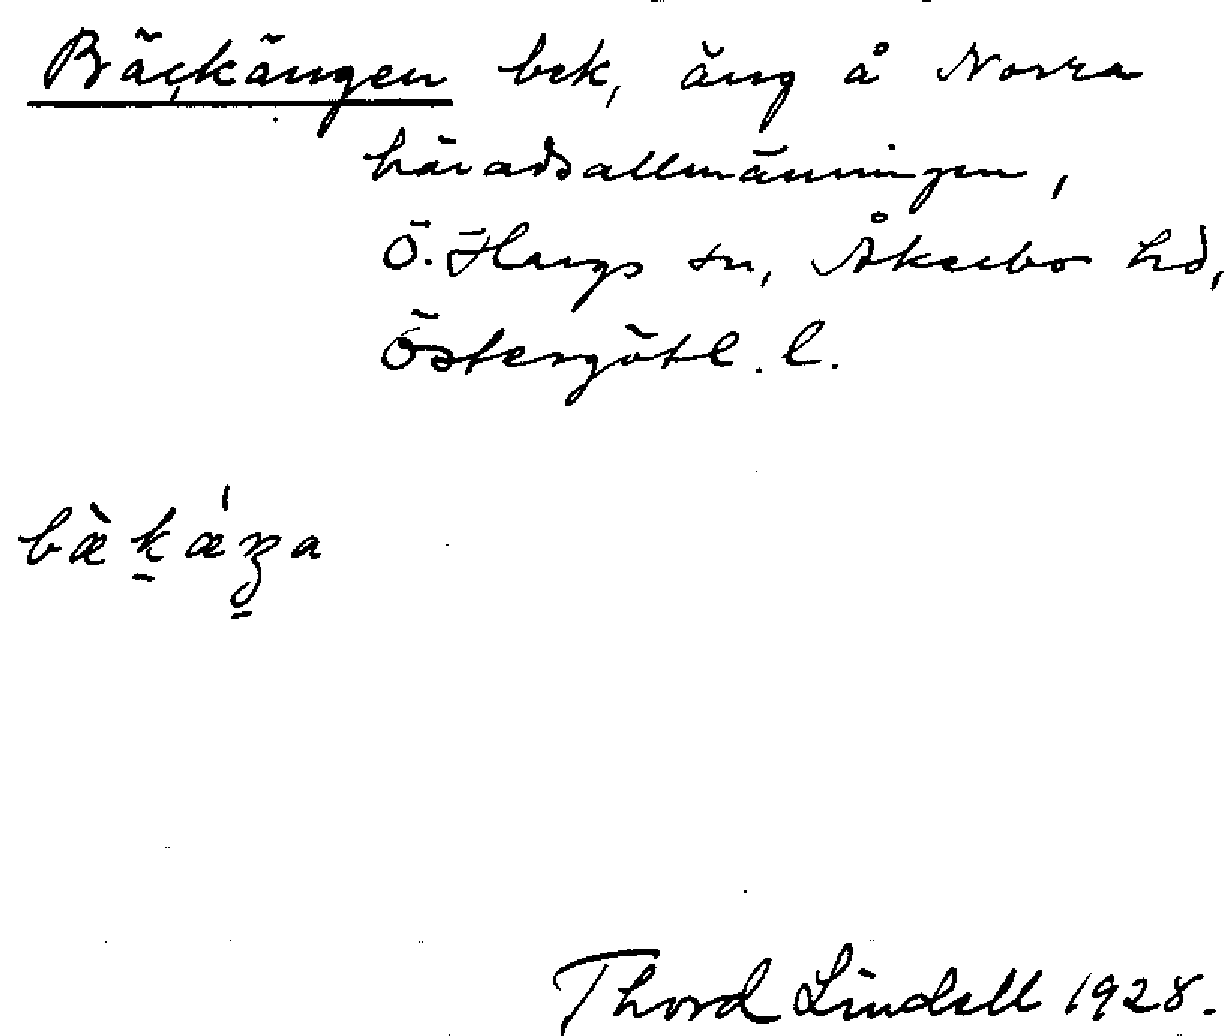 Bäckängen bek, äng å Norra
häradsallmänningen,
Ö. Hargs sn, Åkerbo hd,
Östergötl. l.
bæ̀kǽŋa
Thord Lindell 1928.